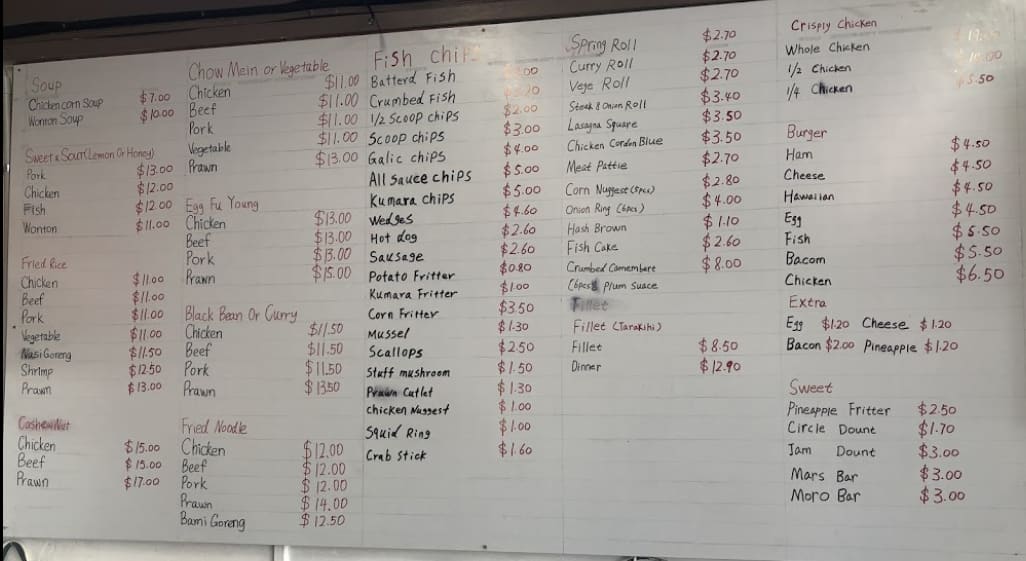 Soup
Chicken corn Soup $7.00
Wonton Soup $10.00
Sweet & Sour (Lemon Or Honey)
Pork $13.00
Chicken $12.00
Fish $12.00
Wonton $11.00
Fried Rice
Chicken $11.00
Beef $11.00
Pork $11.00
Vegetable $11.00
Nasi Goreng $11.50
Shrimp $12.50
Prawn $13.00
Cashew Nut
Chicken $15.00
Beef $15.00
Prawn $17.00
Chow Mein or Vegetable
Chicken $11.00
Beef $11.00
Pork $11.00
Vegetable $11.00
Prawn $13.00
Egg Fu Young
Chicken $13.00
Beef $13.00
Pork $13.00
Prawn $15.00
Black Bean Or Curry
Chicken $11.50
Beef $11.50
Pork $11.50
Prawn $13.50
Fried Noodle
Chicken $12.00
Beef $12.00
Pork $12.00
Prawn $14.00
Bami Goreng $12.50
Fish chips
Batterd Fish
Crumbed Fish
1/2 Scoop chips $2.00
Scoop chips $3.00
Galic chips $4.00
All Sauce chips $5.00
Kumara chips $5.00
Wedges $4.60
Hot dog $2.60
Sausage $2.60
Potato Fritter $0.80
Kumara Fritter $1.00
Corn Fritter $3.50
Mussel $1.30
Scallops $2.50
Stuff mushroom $1.50
Prawn Cutlet $1.30
chicken Nuggest $1.00
Squid Ring $1.00
Crab Stick $1.60
Spring Roll $2.70
Curry Roll $2.70
Vege Roll $2.70
Steak & Onion Roll $3.40
Lasagna Square $3.50
Chicken Cordon Blue $3.50
Meat Pattie $2.70
Corn Nuggest (5pcs) $2.80
Onion Ring (6pcs) $4.00
Hash Brown $1.10
Fish Cake $2.60
Crumbed Camembert $8.00
(6pcs) Plum Suace
Fillet
Fillet (Tarakihi)
Fillet $8.50
Dinner $12.90
Crispty Chicken
Whole Chicken
1/2 Chicken
1/4 Chicken
Burger
Ham $4.50
Cheese $4.50
Hawaiian $4.50
Egg $4.50
Fish $5.50
Bacom $5.50
Chicken $6.50
Extra
Egg $1.20 Cheese $1.20
Bacon $2.00 Pineapple $1.20
Sweet
Pineapple Fritter $2.50
Circle Dount $1.70
Jam Dount $3.00
Mars Bar $3.00
Moro Bar $3.00